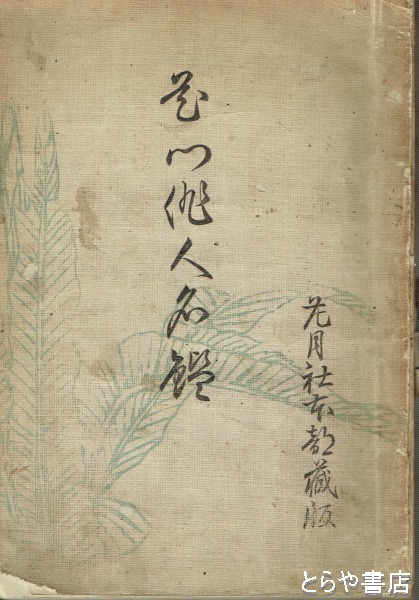 芭門俳人名鑑
花月社本部蔵版
とらや書店